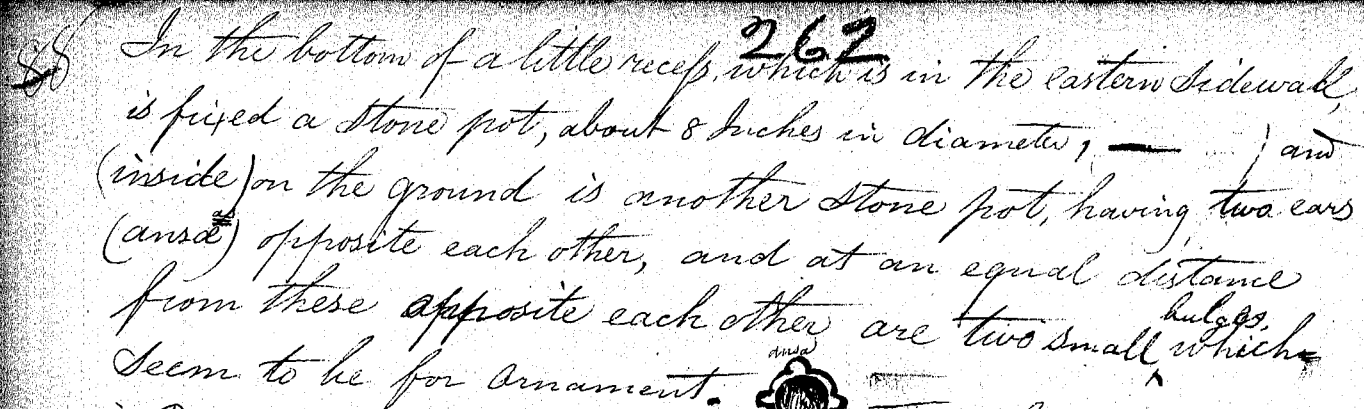 262
88 In the bottom of a little recess, which is in the eastern Sidewall,
is fixed a Stone pot, about 8 Inches in diameter, — ) and
(inside) on the ground is another Stone pot, having two ears
(ansæ) opposite each other, and at an equal distance
from these opposite each other are two small bulges, which
seem to be for Ornament.
ansa